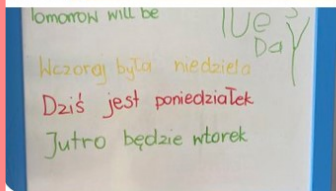 Tomorrow will be
Tues
Day
Wczoraj była niedziela
Dziś jest poniedziałek
Jutro będzie wtorek